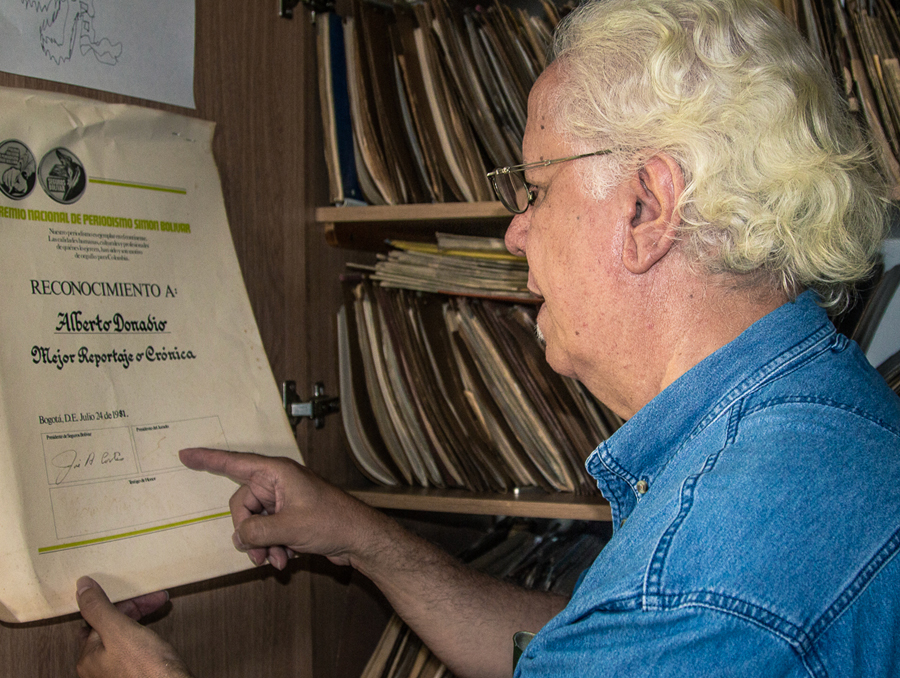 PREMIO NACIONAL DE PERIODISMO SIMON BOLIVAR
Nuestro periodismo es ejemplar en el continente.
Las calidades humanas, culturales y profesionales
de quienes lo ejercen, han sido y son motivo
de orgullo para Colombia.
RECONOCIMIENTO A:
Alberto Donadio
Mejor Reportaje o Crónica
Bogotá, D.E. Julio 24 de 1981.
Presidente de Seguros Bolívar
Presidente del Jurado
Testigo de Honor